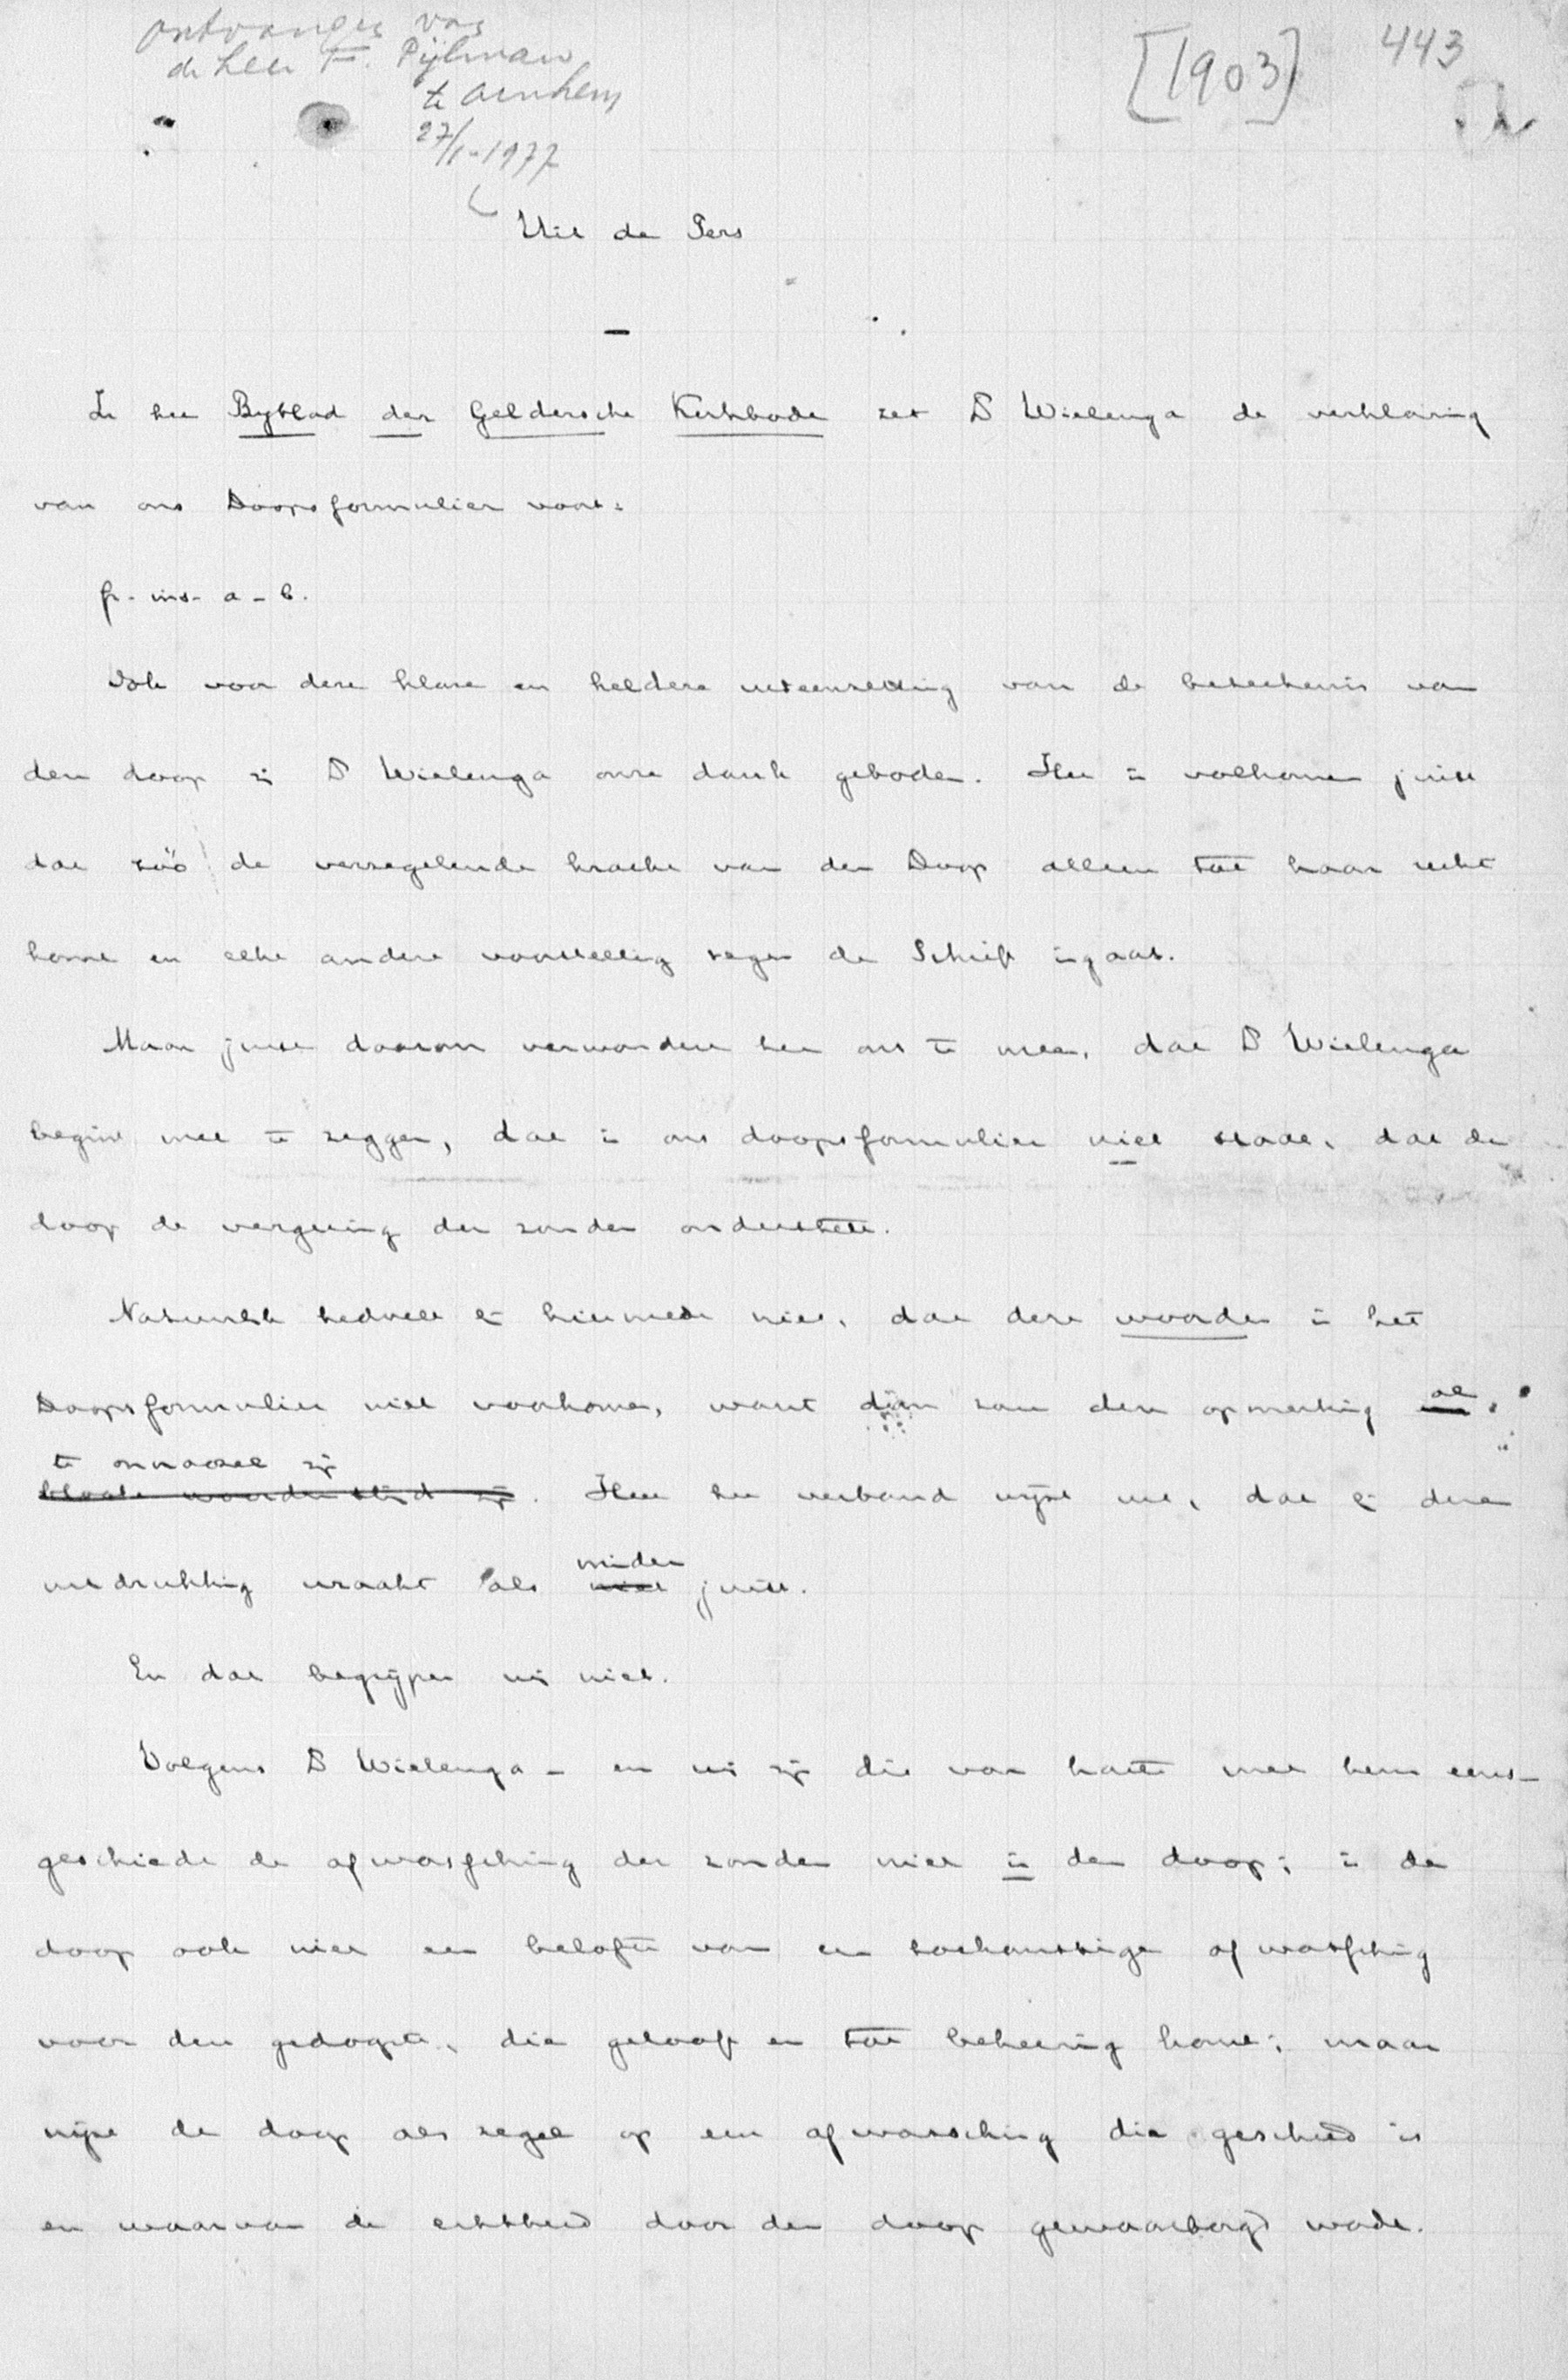 ontvangen van
de heer F. Pijlman
te Arnhem
27/1-1977
[1903] 443
Uit de Pers
In het Bijblad der Geldersche Kerkbode zet Ds Wielenga de verklaring
van ons Doopsformulier voort:
p. ins. a - b.
Ook voor deze klare en heldere uiteenzetting van de beteekenis van
den doop zij Ds Wielenga onze dank geboden. Het is volkomen juist
dat zóó de verzegelende kracht van den Doop alleen tot haar recht
komt en elke andere voorstelling tegen de Schrift ingaat.
Maar juist daarom verwondert het ons te meer, dat Ds Wielenga
begint met te zeggen, dat in ons doopsformulier niet staat, dat de
doop de vergeving der zonden onderstelt.
Natuurlijk bedoelt hij hiermede niet, dat deze woorden in het
Doopsformulier niet voorkomen, want dan zou deze opmerking al
te onnoozel zijn
bloote woordenstrijd zijn. Heel het verband wijst uit, dat hij deze
uitdrukking wraakt als minder niet juist.
En dat begrijpen wij niet.
Volgens Ds Wielenga - en wij zijn dit van harte met hem eens -
geschiedt de afwassching der zonden niet in den doop; is de
doop ook niet een belofte van een toekomstige afwassching
voor den gedoopte, die gelooft en tot bekeering komt; maar
wijst de doop als zegel op een afwassching die geschied is
en waarvan de echtheid door den doop gewaarborgd wordt.